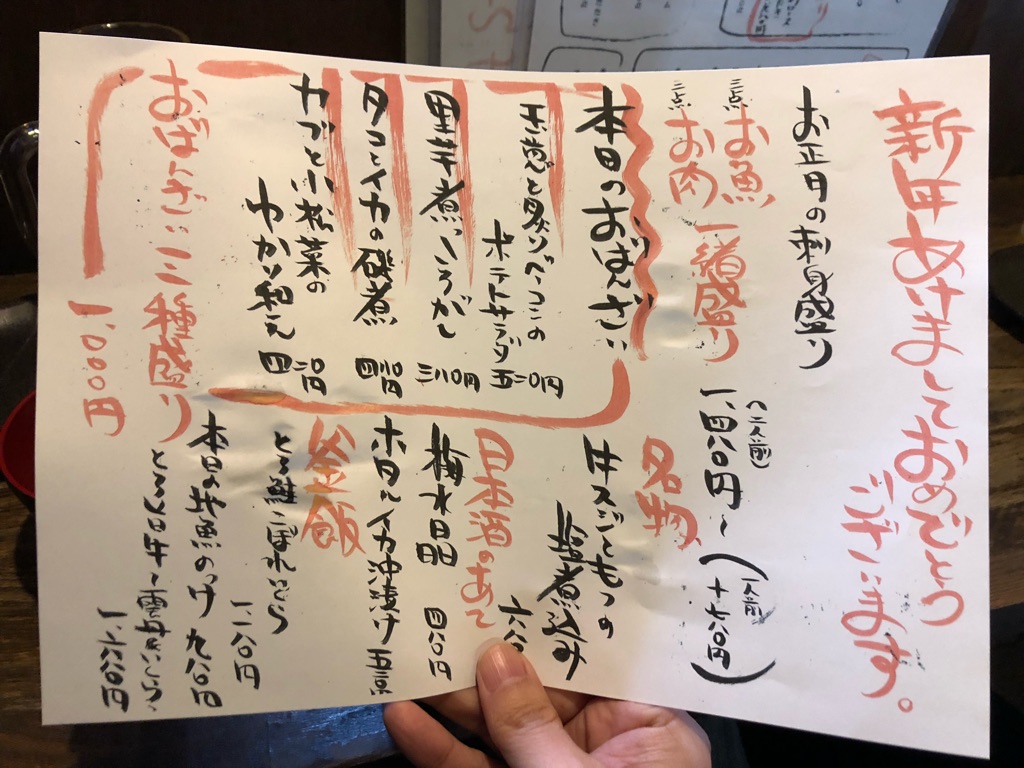 新年あけましておめでとう
ございます。
お正月の刺身盛り
三点お魚
三点お肉
一緒盛り
(二人前)
一、四八〇円〜
(一人前
+七八〇円)
本日のおばんざい
玉葱と炙りベーコンの
ポテトサラダ
五二〇円
里芋煮っころがし
三八〇円
タコとイカの磯煮
四八〇円
カブと小松菜の
ゆかり和え
四二〇円
おばんざい三種盛り
1,000円
名物
牛スジともつの
塩煮込み
六八〇
日本酒のあて
梅水晶
四八〇円
ホタルイカ沖漬け
釜飯
とろ鮭こぼれいくら
一二八〇円
本日の地魚の
九八〇円